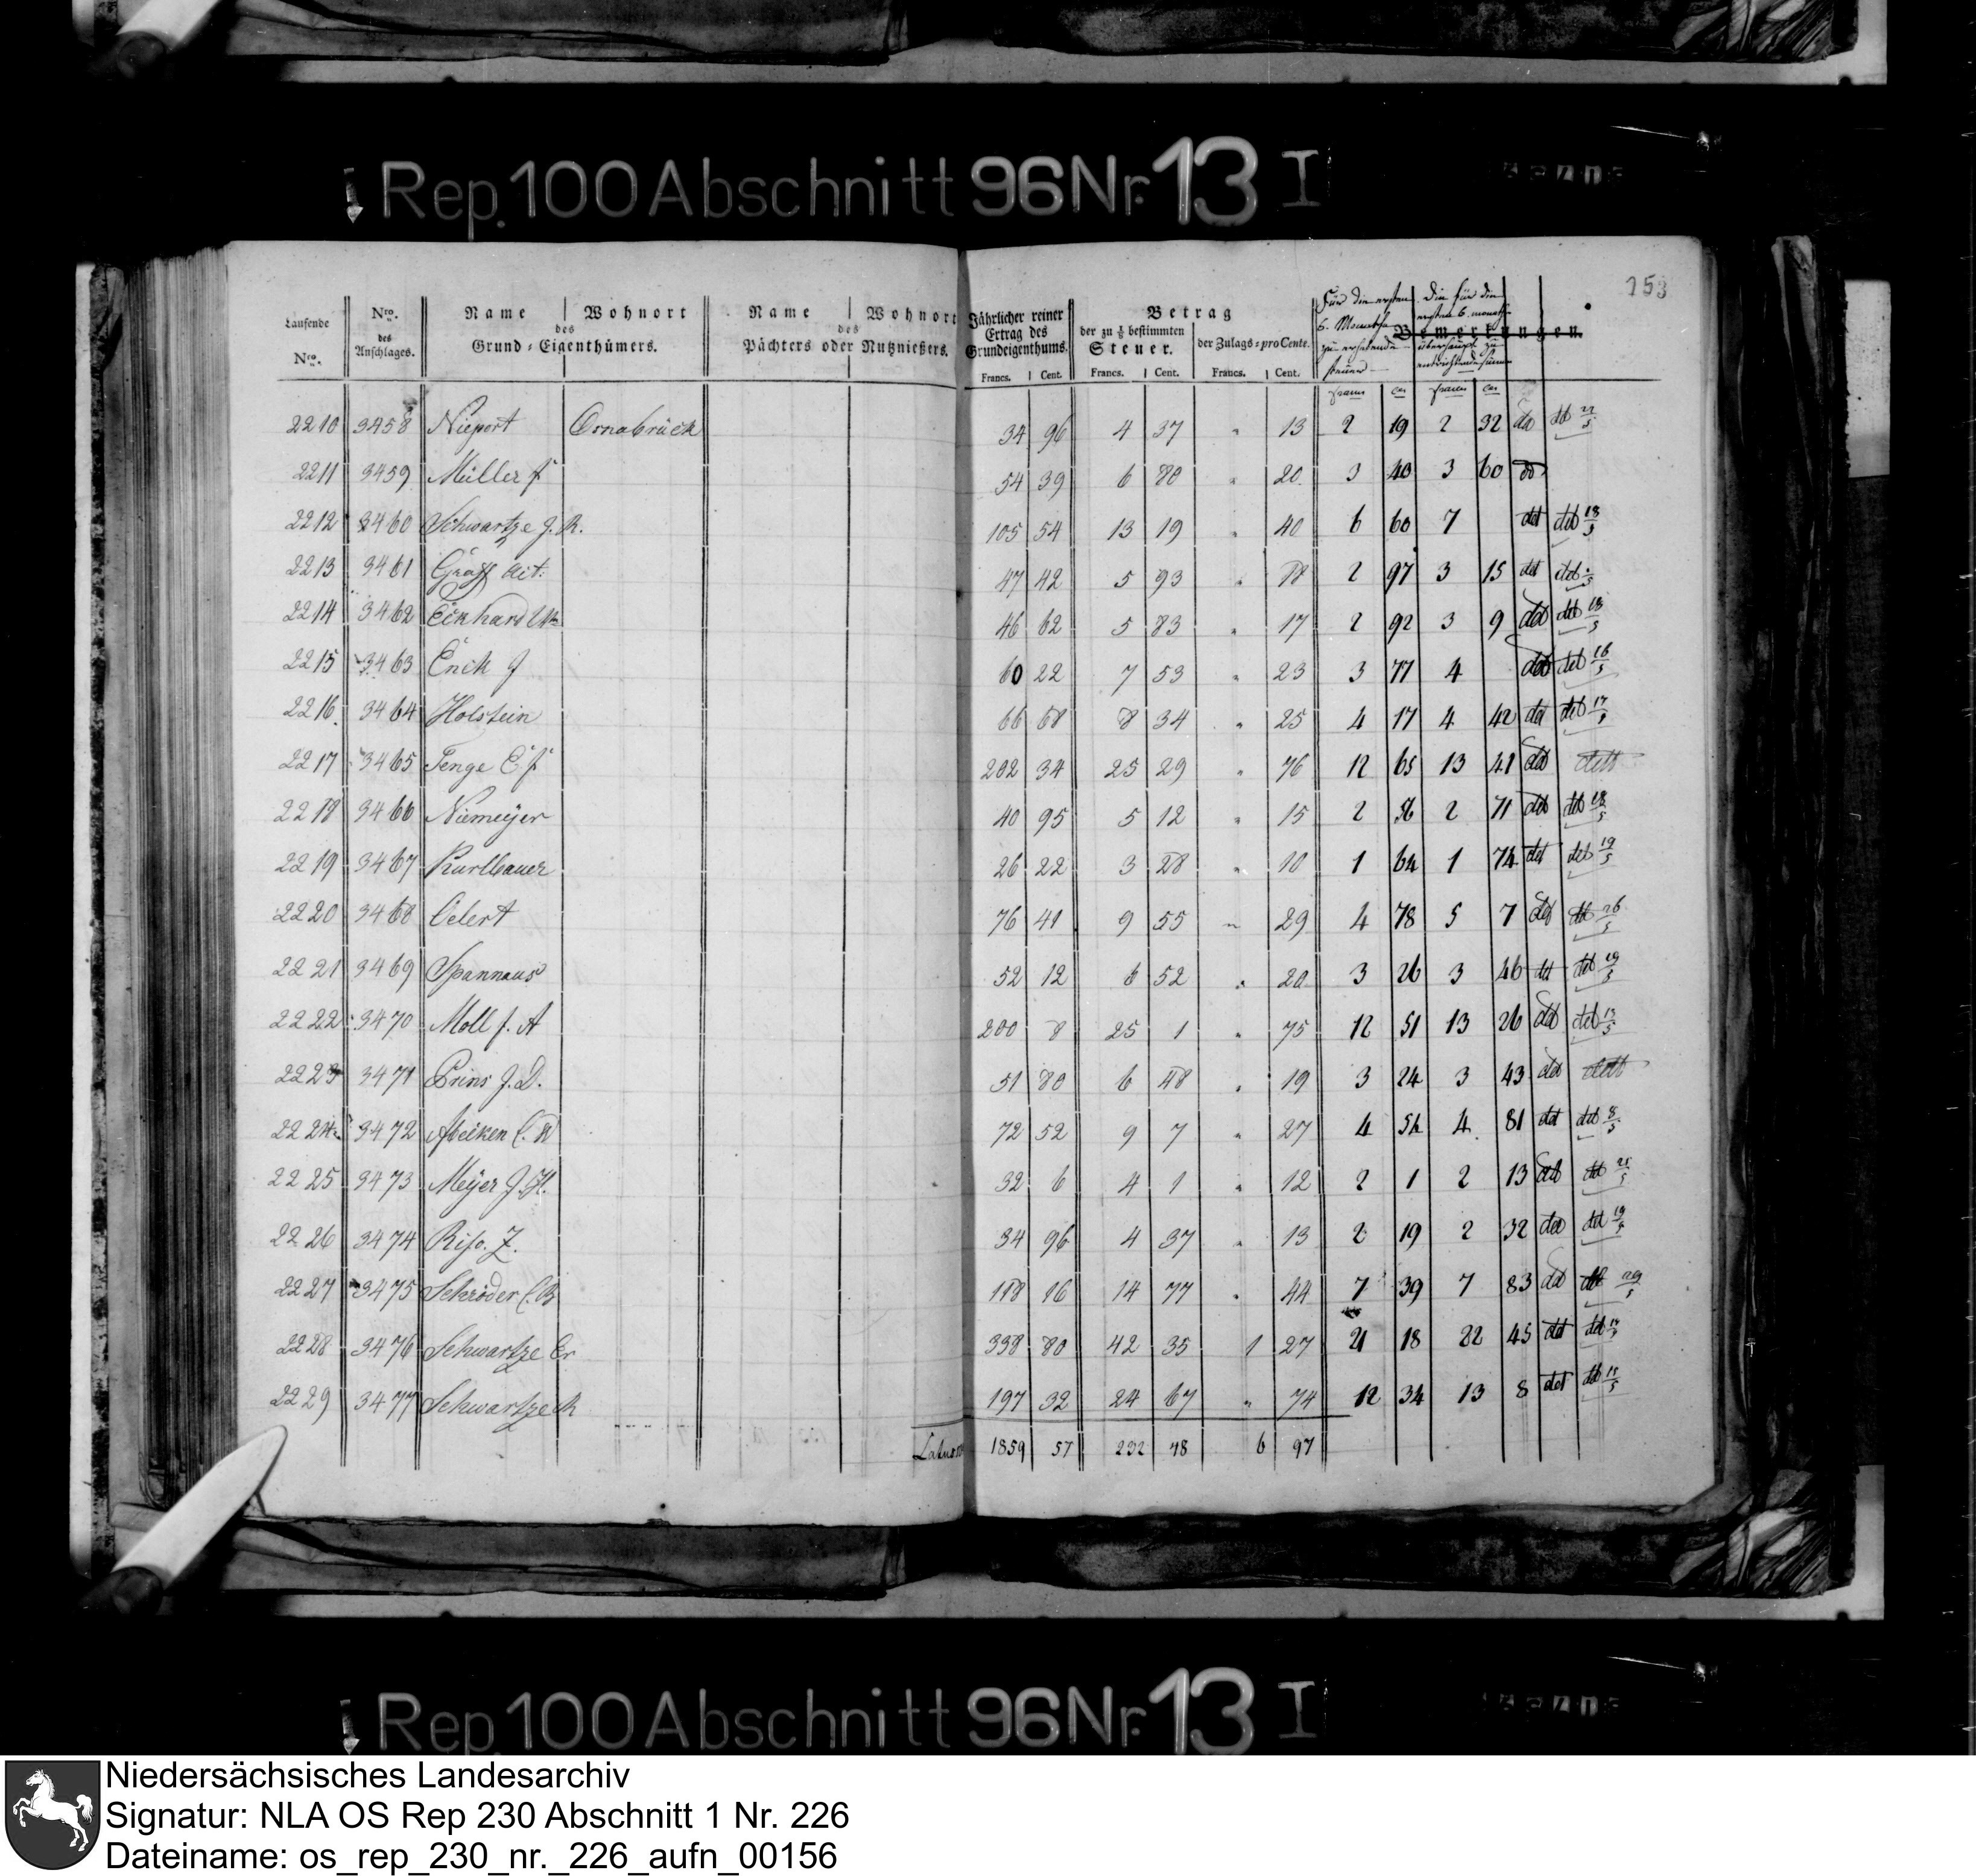 Rep. 100 Abschnitt 96 Nr. 13 I
153
Laufende Nro.
Nro. des Anschlages.
Name Wohnort des Grund-Eigenthümers.
Name Wohnort des Pächters oder Nutznießers.
Jährlicher reiner Ertrag des Grundeigenthums. Francs. Cent.
Betrag
der zu 1/8 bestimmten Steuer. Francs. Cent.
der Zulags-proCente. Francs. Cent.
Für die ersten 6. Monathe zu erhebende Steuer
Die für die ersten 6. Monath überhaupt zu entrichtende Summe
Bemerkungen.
2210 3458 Niepert Osnabrück 34 96 4 37 " 13 2 19 2 32 det
2211 3459 Müller f 54 39 6 80 " 20 3 40 3 60
2212 3460 Schwartze J. R. 105 54 13 19 " 40 6 60 7 det det 18/5
2213 3461 Gräff 47 42 5 93 " 18 2 97 3 15 det det
2214 3462 46 62 5 83 " 17 2 92 3 9 det det 18/5
2215 3463 Enck J 60 22 7 53 " 23 3 77 4 det det 16/5
2216 3464 Holstein 66 68 8 34 " 25 4 17 4 42 det det 17/5
2217 3465 Tenge E f 202 34 25 29 " 76 12 65 13 41 det
2218 3466 Niemeÿer 40 95 5 12 " 15 2 56 2 71 det det 18/5
2219 3467 Kurlbauer 26 22 3 28 " 10 1 64 1 74 det det 19/5
2220 3468 Oelert 76 41 9 55 " 29 4 78 5 7 det det 26/5
2221 3469 Spannaus 52 12 6 52 " 20 3 26 3 46 det det 19/5
2222 3470 Moll f. A 200 8 25 1 " 75 12 51 13 26 det det 13/5
2223 3471 Prins J. D. 51 80 6 48 " 19 3 24 3 43 det
2224 3472 Abeken C. W 72 52 9 7 " 27 4 54 4 81 det det 8/5
2225 3473 Meÿer J. H. 32 6 4 1 " 12 2 1 2 13 det det
2226 3474 34 96 4 37 " 13 2 19 2 32 det det 19/5
2227 3475 Schröder C. B 118 16 14 77 " 44 7 39 7 83 det det
2228 3476 Schwartze Er 338 80 42 35 1 27 21 18 22 45 det det
2229 3477 Schwartze 197 32 24 67 " 74 12 34 13 8 det det
Latus 1859 57 232 48 6 97
Rep. 100 Abschnitt 96 Nr. 13 I
Niedersächsisches Landesarchiv
Signatur: NLA OS Rep 230 Abschnitt 1 Nr. 226
Dateiname: os_rep_230_nr._226_aufn_00156